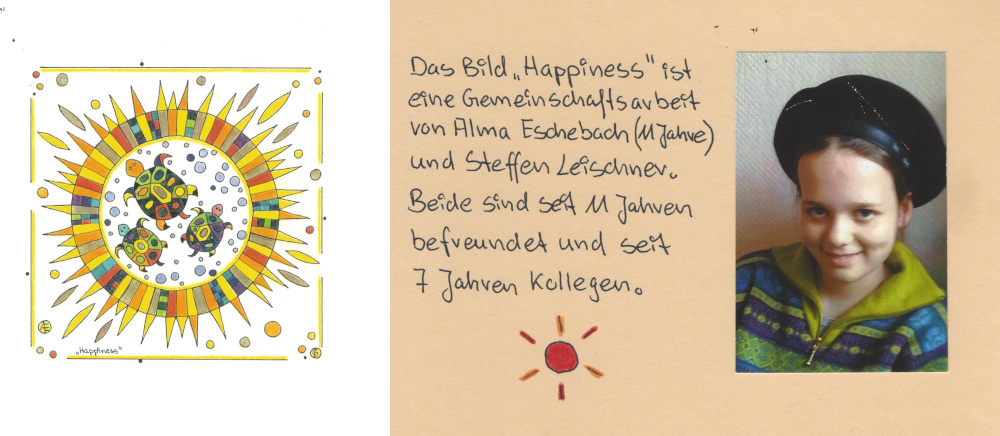 „Happiness"
Das Bild „Happiness" ist
eine Gemeinschaftsarbeit
von Alma Eschebach (11 Jahre)
und Steffen Leischner.
Beide sind seit 11 Jahren
befreundet und seit
7 Jahren Kollegen.